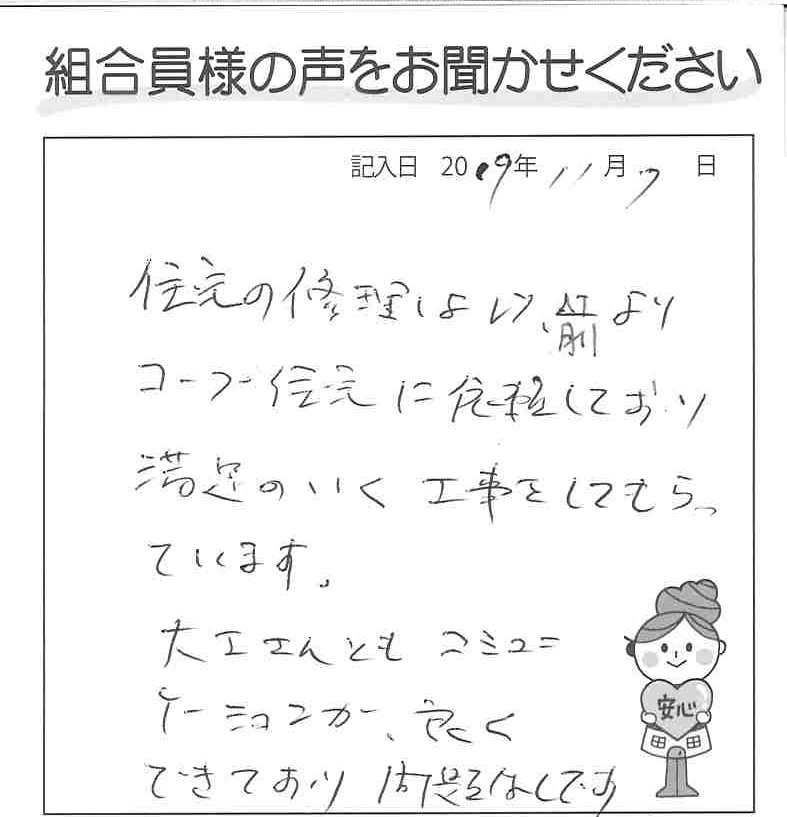 組合員様の声をお聞かせください
記入日 2019年 11月 7 日
住宅の修理はよい、前より
コープ住宅に依頼しており
満足のいく工事をしてもらっ
ています。
大工さんとも コミュニ
ケーションが、良く
できており 問題なしです
安心